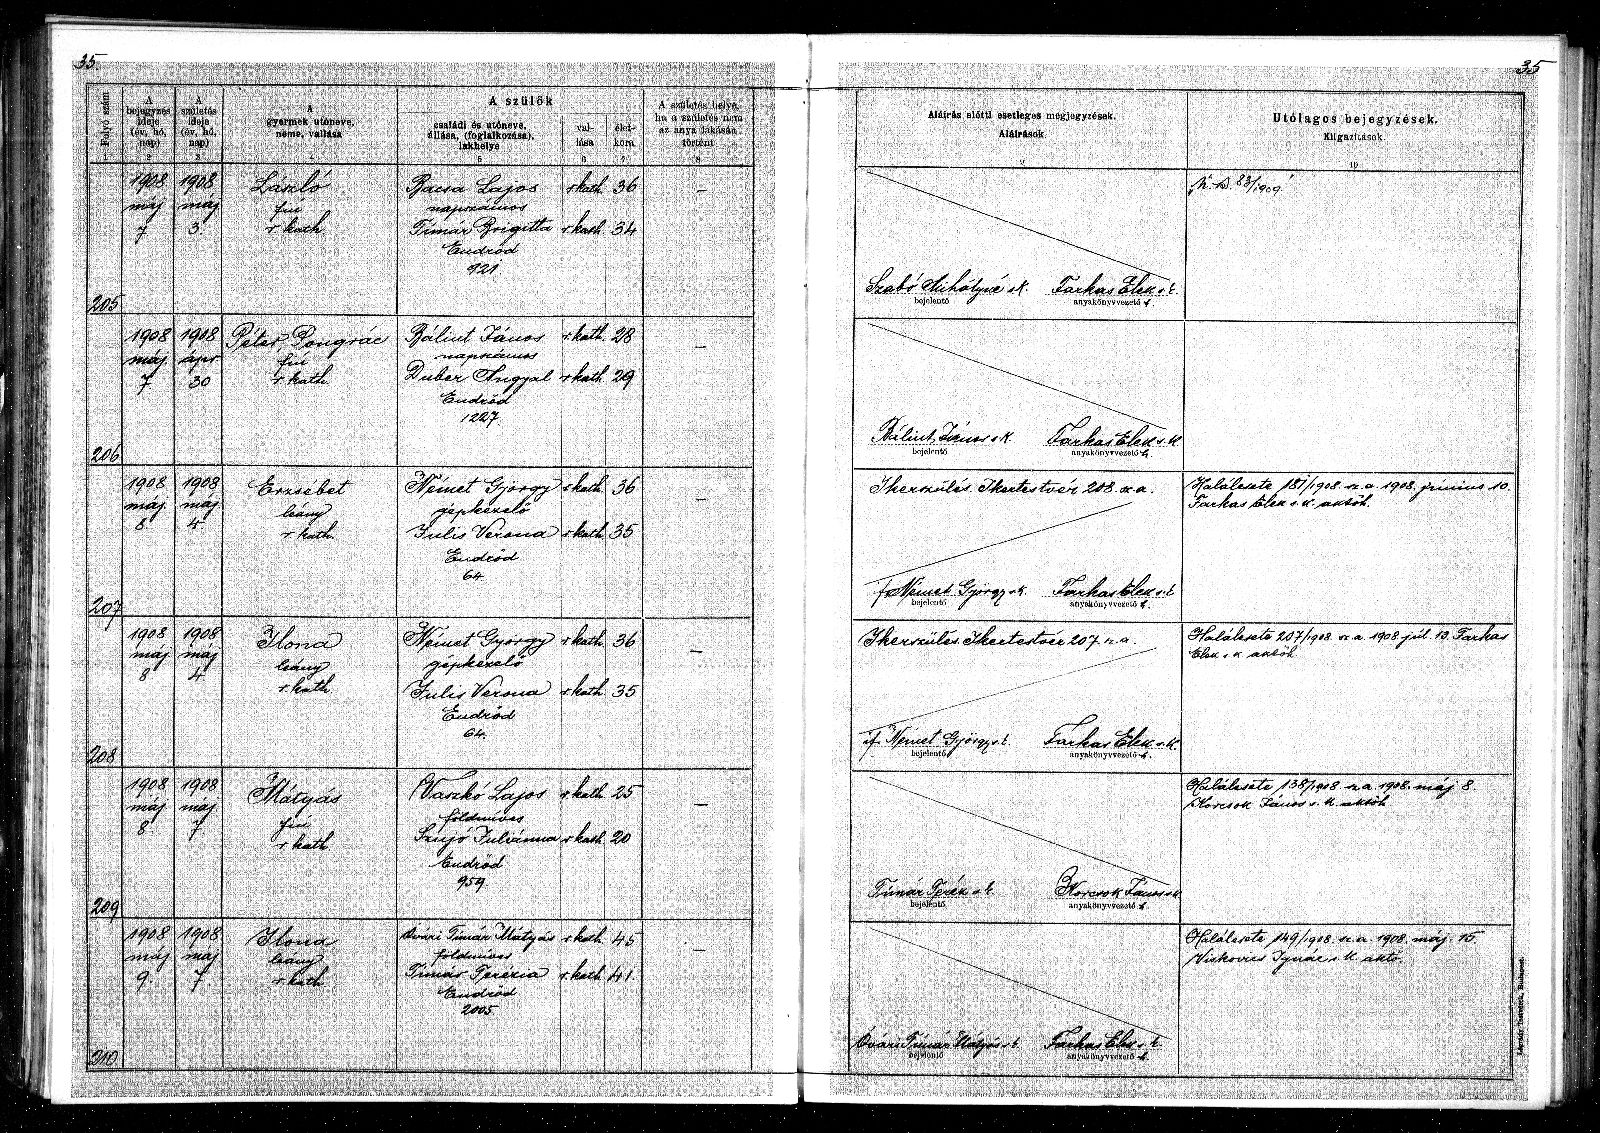 35
35
Folyó szám
A bejegyzés ideje (év, hó, nap)
A születés ideje (év, hó, nap)
A gyermek utóneve, neme, vallása
A szülők
családi és utóneve, állása, (foglalkozása), lakhelye
vallása
életkora
A születés helye, ha a születés nem az anya lakásán történt
Aláírás előtti esetleges megjegyzések.
Aláírások
Utólagos bejegyzések.
Kiigazítások.
2 3 4 5 6 7 8 9 10
205
1908 máj 7
1908 máj 3
László
fiú
r. kath
Bacsa Lajos r. kath 36
napszámos
Timár Brigitta r. kath. 34
Endrőd
921
—
Szabó Mihályné s.k.
bejelentő
Farkas Elek s.k.
anyakönyvvezető h.
83/1909
206
1908 máj. 7
1908 ápr 30
Péter Pongrác
fiú
r. kath.
Bálint János r. kath. 28
napszámos
Duber Angyal r. kath. 29
Endrőd
1227.
—
Bálint János s.k.
bejelentő
Farkas Elek s.k.
anyakönyvvezető h.
207
1908 máj. 8
1908 máj 4
Erzsébet
leány
r. kath.
Német György r. kath. 36
gépkezelő
Julis Verona r. kath. 35
Endrőd
64.
—
Ikerszülés. Ikertestvér 208. sz. a.
if. Német György s.k.
bejelentő
Farkas Elek s.k.
anyakönyvvezető h.
Halálesete 187/1908 sz. a. 1908. június 10.
Farkas Elek s.k. aktöh.
208
1908 máj 8
1908 máj 4
Ilona
leány
r. kath
Német György r. kath. 36
gépkezelő
Julis Verona r. kath. 35
Endrőd
64.
—
Ikerszülés. Ikertestvér 207 sz. a.
if. Német György s.k.
bejelentő
Farkas Elek s.k.
anyakönyvvezető h.
Halálesete 207/1908 sz. a. 1908 júl. 13. Farkas
Elek s.k. aktöh
209
1908 máj 8
1908 máj. 7
Mátyás
fiú
r. kath
Vaszkó Lajos r. kath. 25
földmíves
Szujó Juliánna r. kath. 20
Endrőd
959.
—
Timár Teréz s.k.
bejelentő
Korcsok János s.k.
anyakönyvvezető h.
Halálesete 138/1908 sz. a. 1908. máj 8.
Korcsok János s.k. aktöh.
210
1908 máj 9.
1908 máj 7.
Ilona
leány
r. kath
Ővári Timár Mátyás r. kath. 45
földmíves
Timár Terézia r. kath. 41.
Endrőd
2005.
—
Ővári Timár Mátyás s.k.
bejelentő
Farkas Elek s.k.
anyakönyvvezető h.
Halálesete 149/1908. sz. a. 1908. máj. 15.
Ignác s.k. aktö.